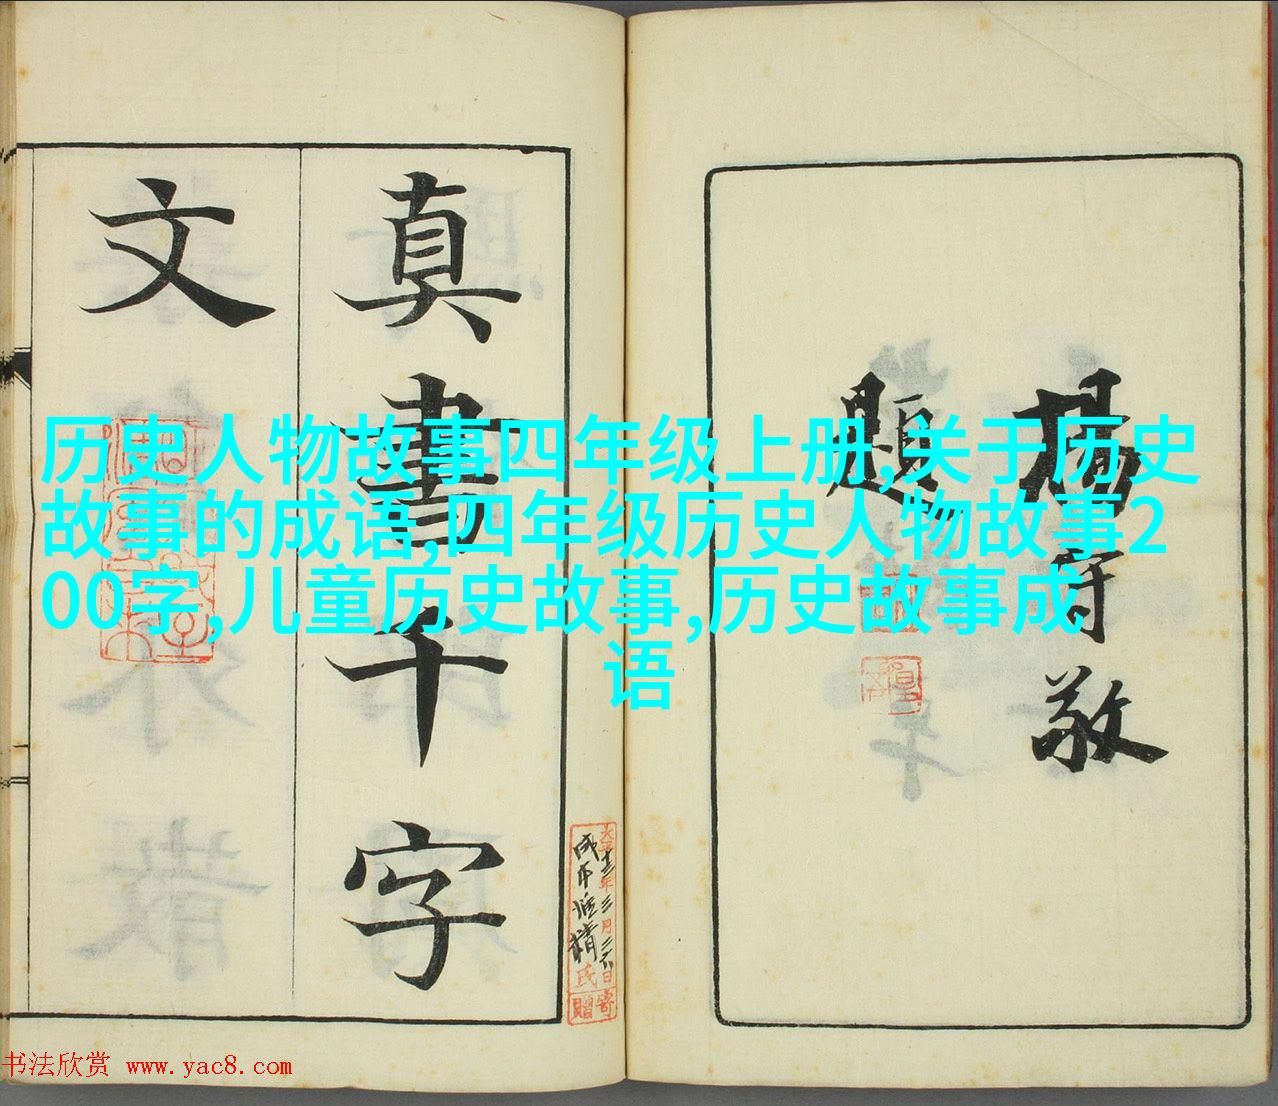 真書千字
文
楊守敬
題
历史人物故事四年级上册,关于历史
故事的成语,四年级历史人物故事2
00字,儿童历史故事,历史故事成
语
氏
寄贈
书法欣赏 www.yac8.com